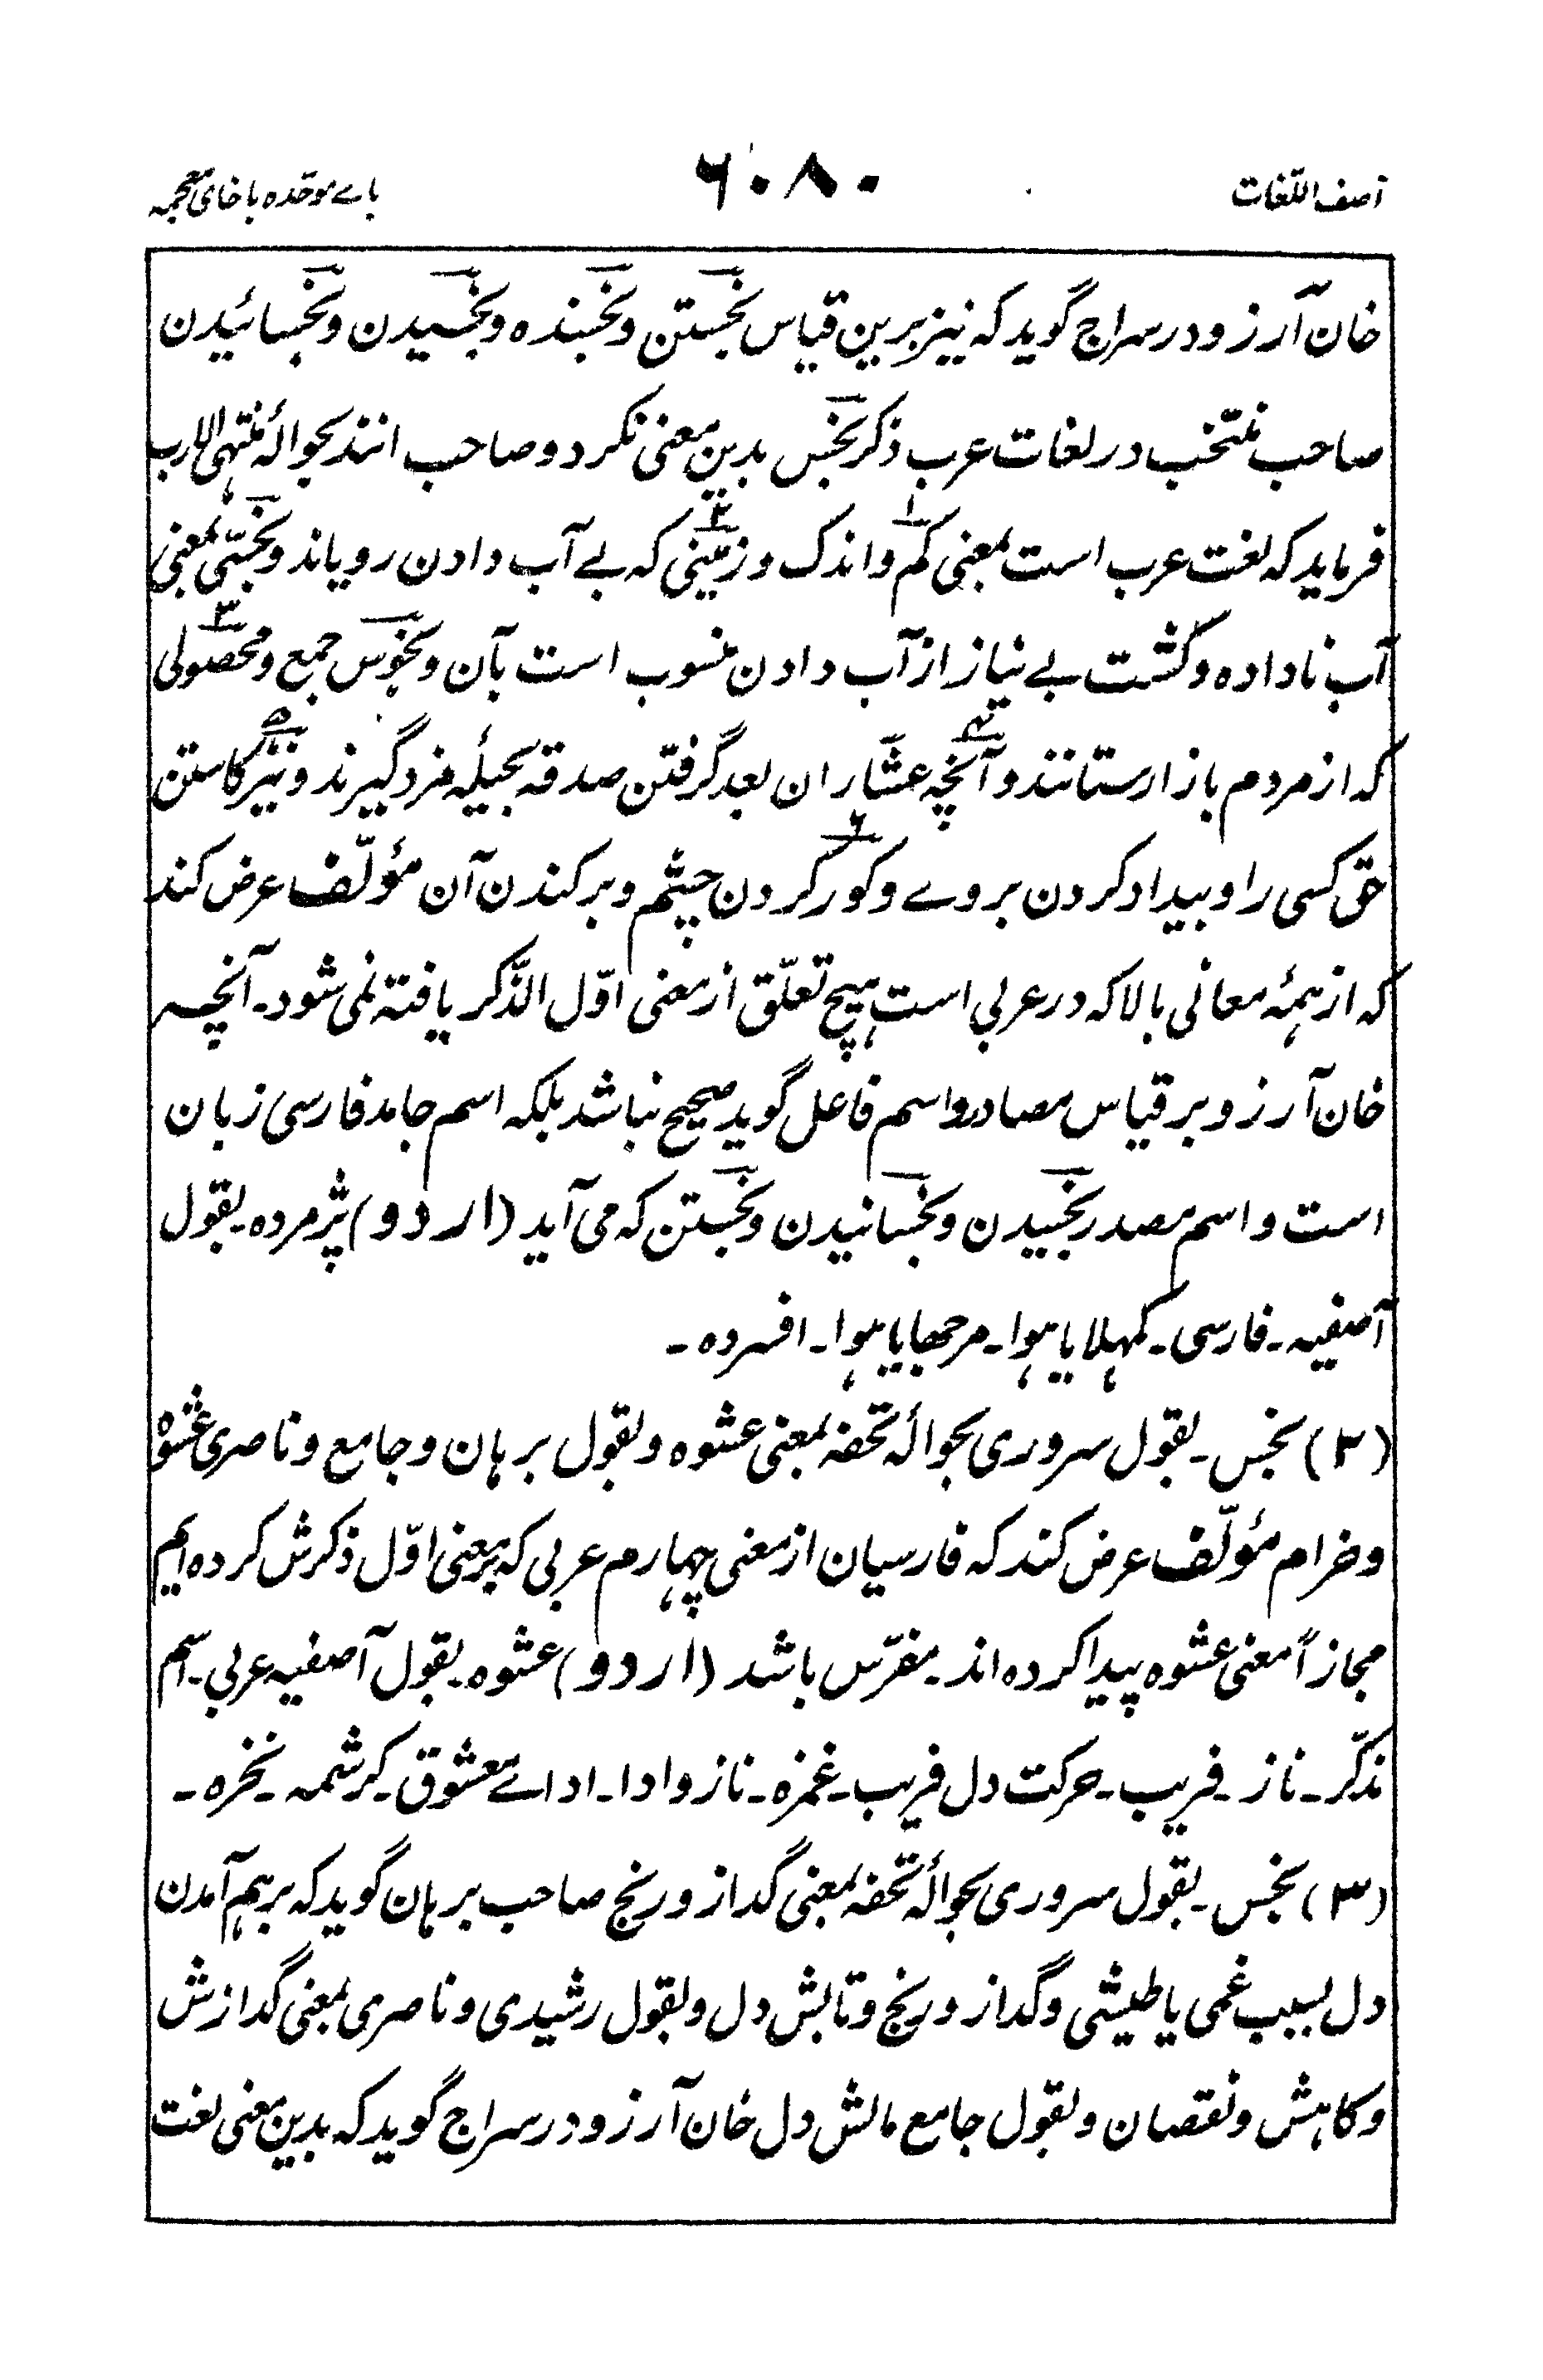 آصف اللّغات
۶۰۸۰
باے موحّدہ با خای معجمہ
خان آرزو در سراج گوید کہ نیز برین قیاس بخستن و بخسندہ و بخسیدن و بخسائیدن
صاحب منتخب در لغات عرب ذکر بخس بدین معنی نکرد و صاحب انند بحوالۂ منتہی الارب
فرماید کہ لغت عرب است بمعنی ۱ کم و اندک و ۲ زمینی کہ بے آب دادن رویاند و بخسّی بمعنی
آب نادادہ و کشت بے نیاز از آب دادن منسوب است بآن و بخوس جمع و ۳ محصولی
کہ از مردم بازار ستانند و ۴ آنچہ عشّاران بعد گرفتن صدقہ بحیلۂ مزد گیرند و نیز ۵ کاستن
حق کسی را و بیداد کردن بروے و ۶ کور کردن چشم و برکندن آن مؤلّف عرض کند
کہ از ہمۂ معانی بالا کہ در عربی است ہیچ تعلّق از معنی اوّل الذّکر یافتہ نمی شود۔ آنچہ
خان آرزو بر قیاس مصادر و اسم فاعل گوید صحیح نباشد بلکہ اسم جامد فارسی زبان
است و اسم مصدر بخسیدن و بخسانیدن و بخستن کہ می آید (اردو) پژمردہ۔ بقول
آصفیہ۔ فارسی۔ کمہلایا ہوا۔ مرجھایا ہوا۔ افسردہ۔
(۲) بخس۔ بقول سروری بحوالۂ تحفہ بمعنی عشوہ و بقول برہان و جامع و ناصری عشوہ
و خرام مؤلّف عرض کند کہ فارسیان از معنی چہارم عربی کہ بر معنی اوّل ذکرش کردہ ایم
مجازاً معنی عشوہ پیدا کردہ اند۔ مفرّس باشد (اردو) عشوہ۔ بقول آصفیہ عربی۔ اسم
مذکّر۔ ناز۔ فریب۔ حرکت دل فریب۔ غمزہ۔ ناز و ادا۔ اداے معشوق۔ کرشمہ۔ نخرہ۔
(۳) بخس۔ بقول سروری بحوالۂ تحفہ بمعنی گداز و رنج صاحب برہان گوید کہ برہم آمدن
دل بسبب غمی یا طیشی و گداز و رنج و تابش دل و بقول رشیدی و ناصری بمعنی گدازش
و کاہش و نقصان و بقول جامع مالش دل خان آرزو در سراج گوید کہ بدین معنی لغت